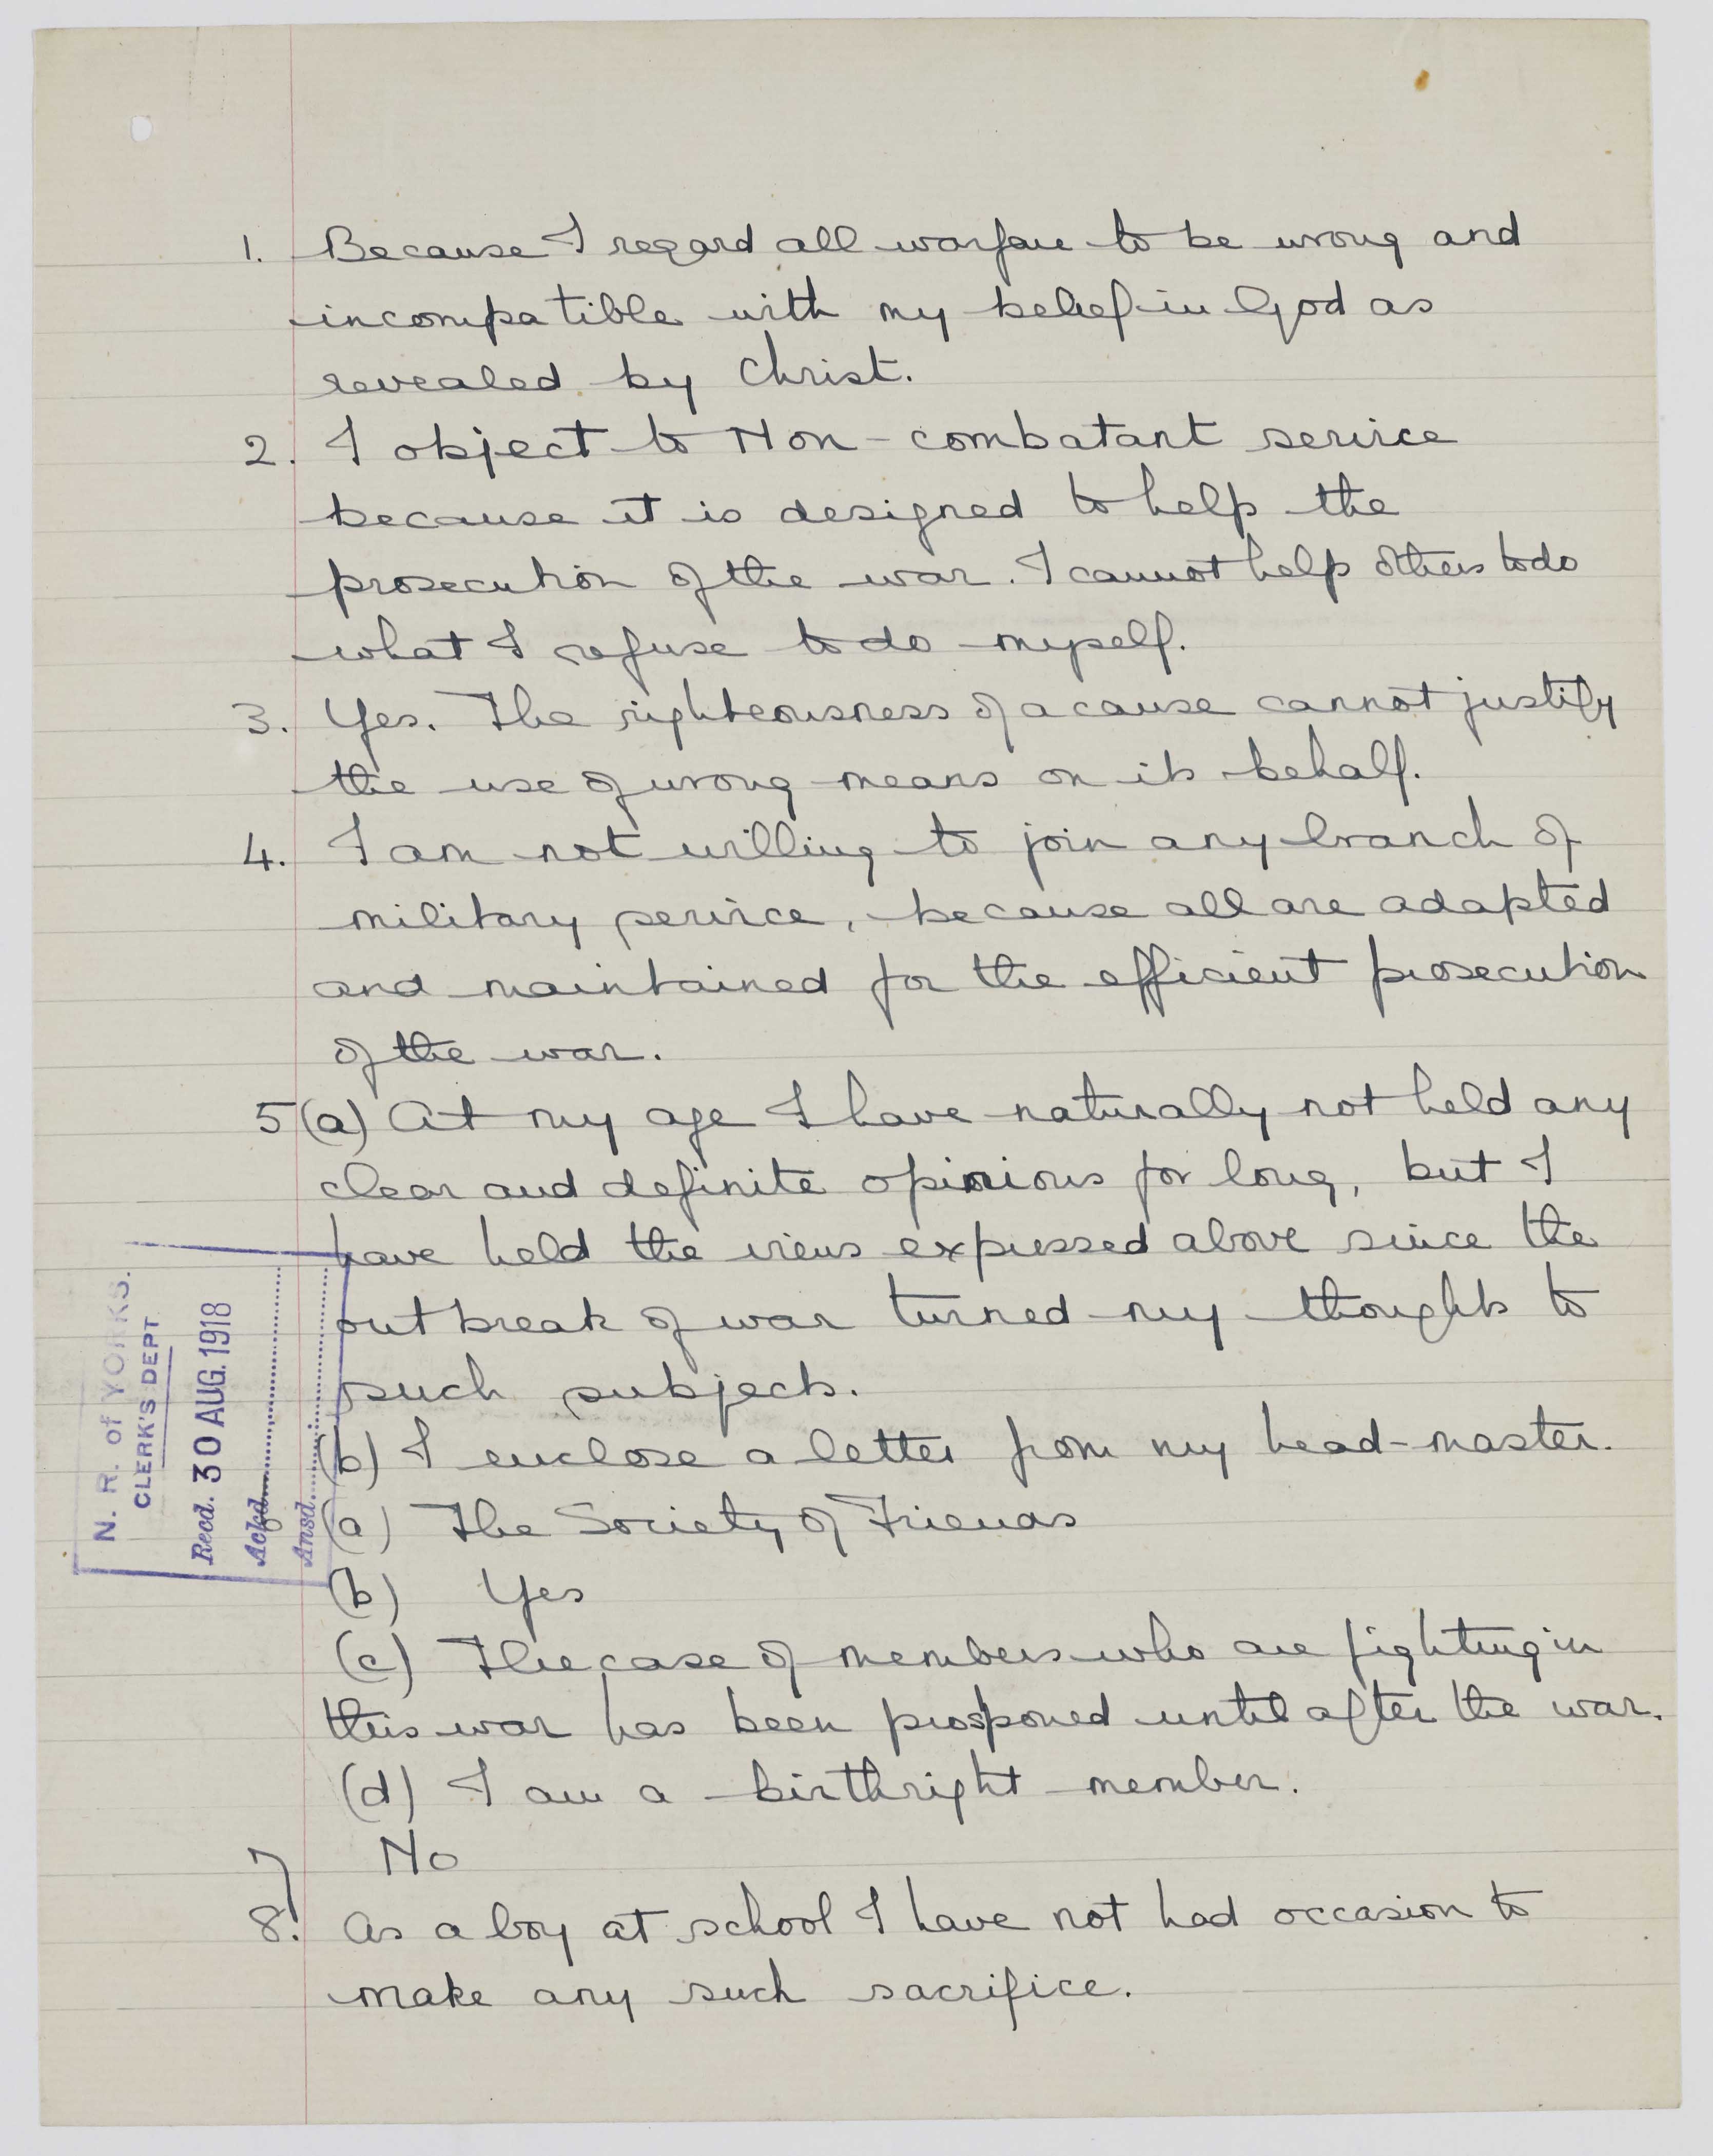 1. Because I regard all warfare to be wrong and
incompatible with my belief in God as
revealed by Christ.
2. I object to Non-combatant service
because it is designed to help the
prosecution of the war. I cannot help others to do
what I refuse to do myself.
3. Yes. The righteousness of a cause cannot justify
the use of wrong means on its behalf.
4. I am not willing to join any branch of
military service, because all are adapted
and maintained for the efficient prosecution
of the war.
5(a) At my age I have naturally not held any
clear and definite opinions for long, but I
have held the views expressed above since the
outbreak of war turned my thoughts to
such subjects.
(b) I enclose a letter from my head-master.
(a) The Society of Friends
(b) Yes
(c) The case of members who are fighting in
this war has been prosponed until after the war.
(d) I am a birthright member.
7 No
8. As a boy at school I have not had occasion to
make any such sacrifice.
N. R. of YORKS.
CLERK'S DEPT
Recd. 30 AUG. 1918
Ackd.
Ansd.